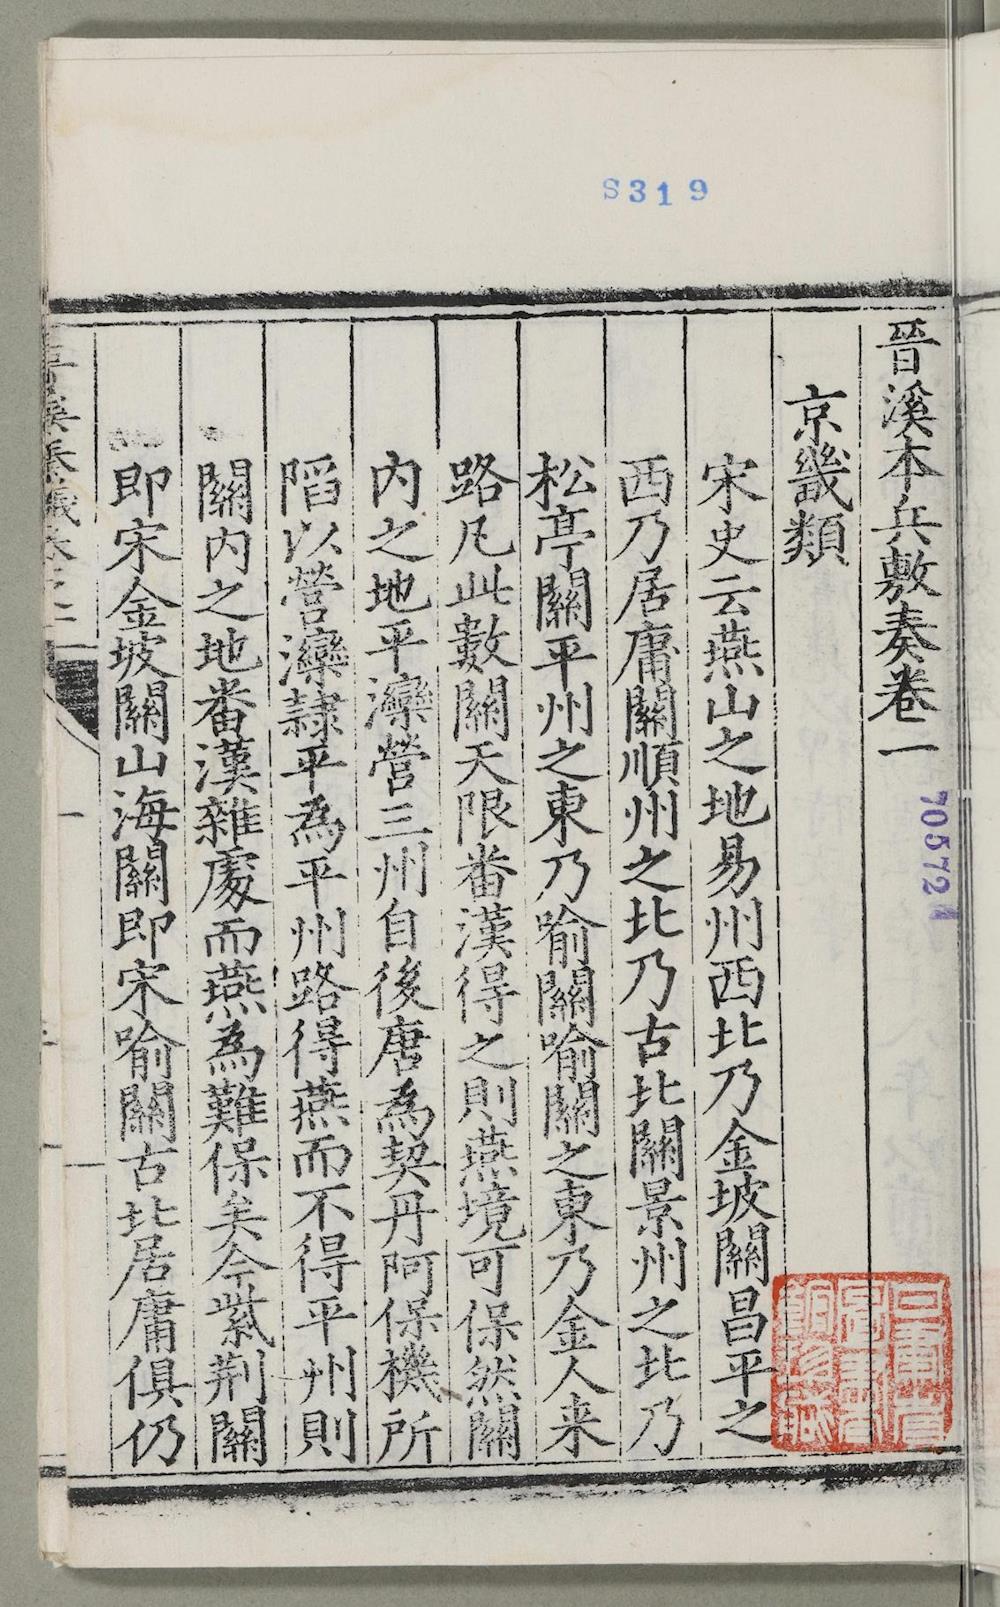 S319
晉溪本兵敷奏卷一
京畿類
宋史云燕山之地易州西北乃金坡關昌平之
西乃居庸關順州之北乃古北關景州之北乃
松亭關平州之東乃喻關喻關之東乃金人来
路凡此數關天限番漢得之則燕境可保然關
内之地平灤營三州自後唐為契丹阿保機所
䧟以營灤隸平為平州路得燕而不得平州則
關内之地番漢雜處而燕為難保矣今紫荆關
即宋金坡關山海關即宋喻關古北居庸俱仍
一
705724